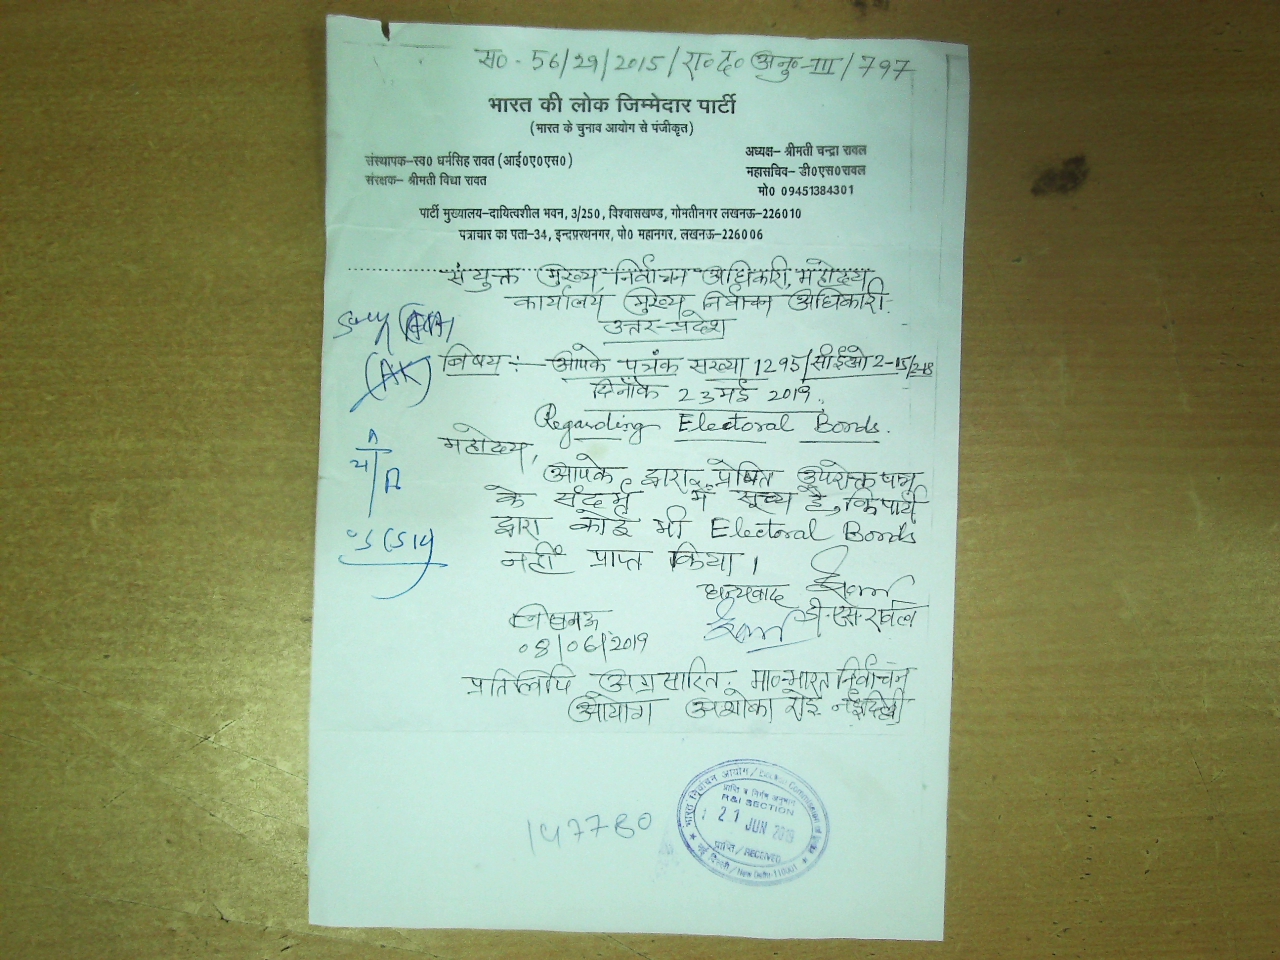 स० - 56/29/2015/रा० द० अनु०-III/797
भारत की लोक जिम्मेदार पार्टी
(भारत के चुनाव आयोग से पंजीकृत)
संस्थापक–स्व० धर्नसिह रावत (आई०ए०एस०)
अध्यक्ष– श्रीमती चन्द्रा रावल
संरक्षक– श्रीमती विद्या रावत
महासचिव– डी०एस०रावल
मो० 09451384301
पार्टी मुख्यालय–दायित्वशील भवन, 3/250, विश्वासखण्ड, गोमतीनगर लखनऊ–226010
पत्राचार का पता–34, इन्दप्रस्थनगर, पो० महानगर, लखनऊ–226006
संयुक्त मुख्य निर्वाचन अधिकारी, महोदय
कार्यालय मुख्य निर्वाचन अधिकारी
उत्तर-प्रदेश
(AK)
विषय :- आपके पत्रंक संख्या 1295/सीईओ 2-15/2-18
दिनाँक 23 मई 2019.
Regarding Electoral Bonds.
महोदय,
आपके द्वारा प्रेषित उपरोक्त पत्र
के संदर्भ में सूच्य है, कि पार्टी
द्वारा कोई भी Electoral Bonds
नहीं प्राप्त किया।
धन्यवाद
डी-एस-रावल
लखनऊ
08/06/2019
प्रतिलिपि अग्रसारित: मा० भारत निर्वाचन
आयोग अशोका रोड नई दिल्ली
147780
भारत निर्वाचन आयोग / Election Commission of India
प्राप्ति व निर्गम अनुभाग
R&I SECTION
21 JUN 2019
प्राप्ति / RECEIVED
नई दिल्ली / New Delhi-110001